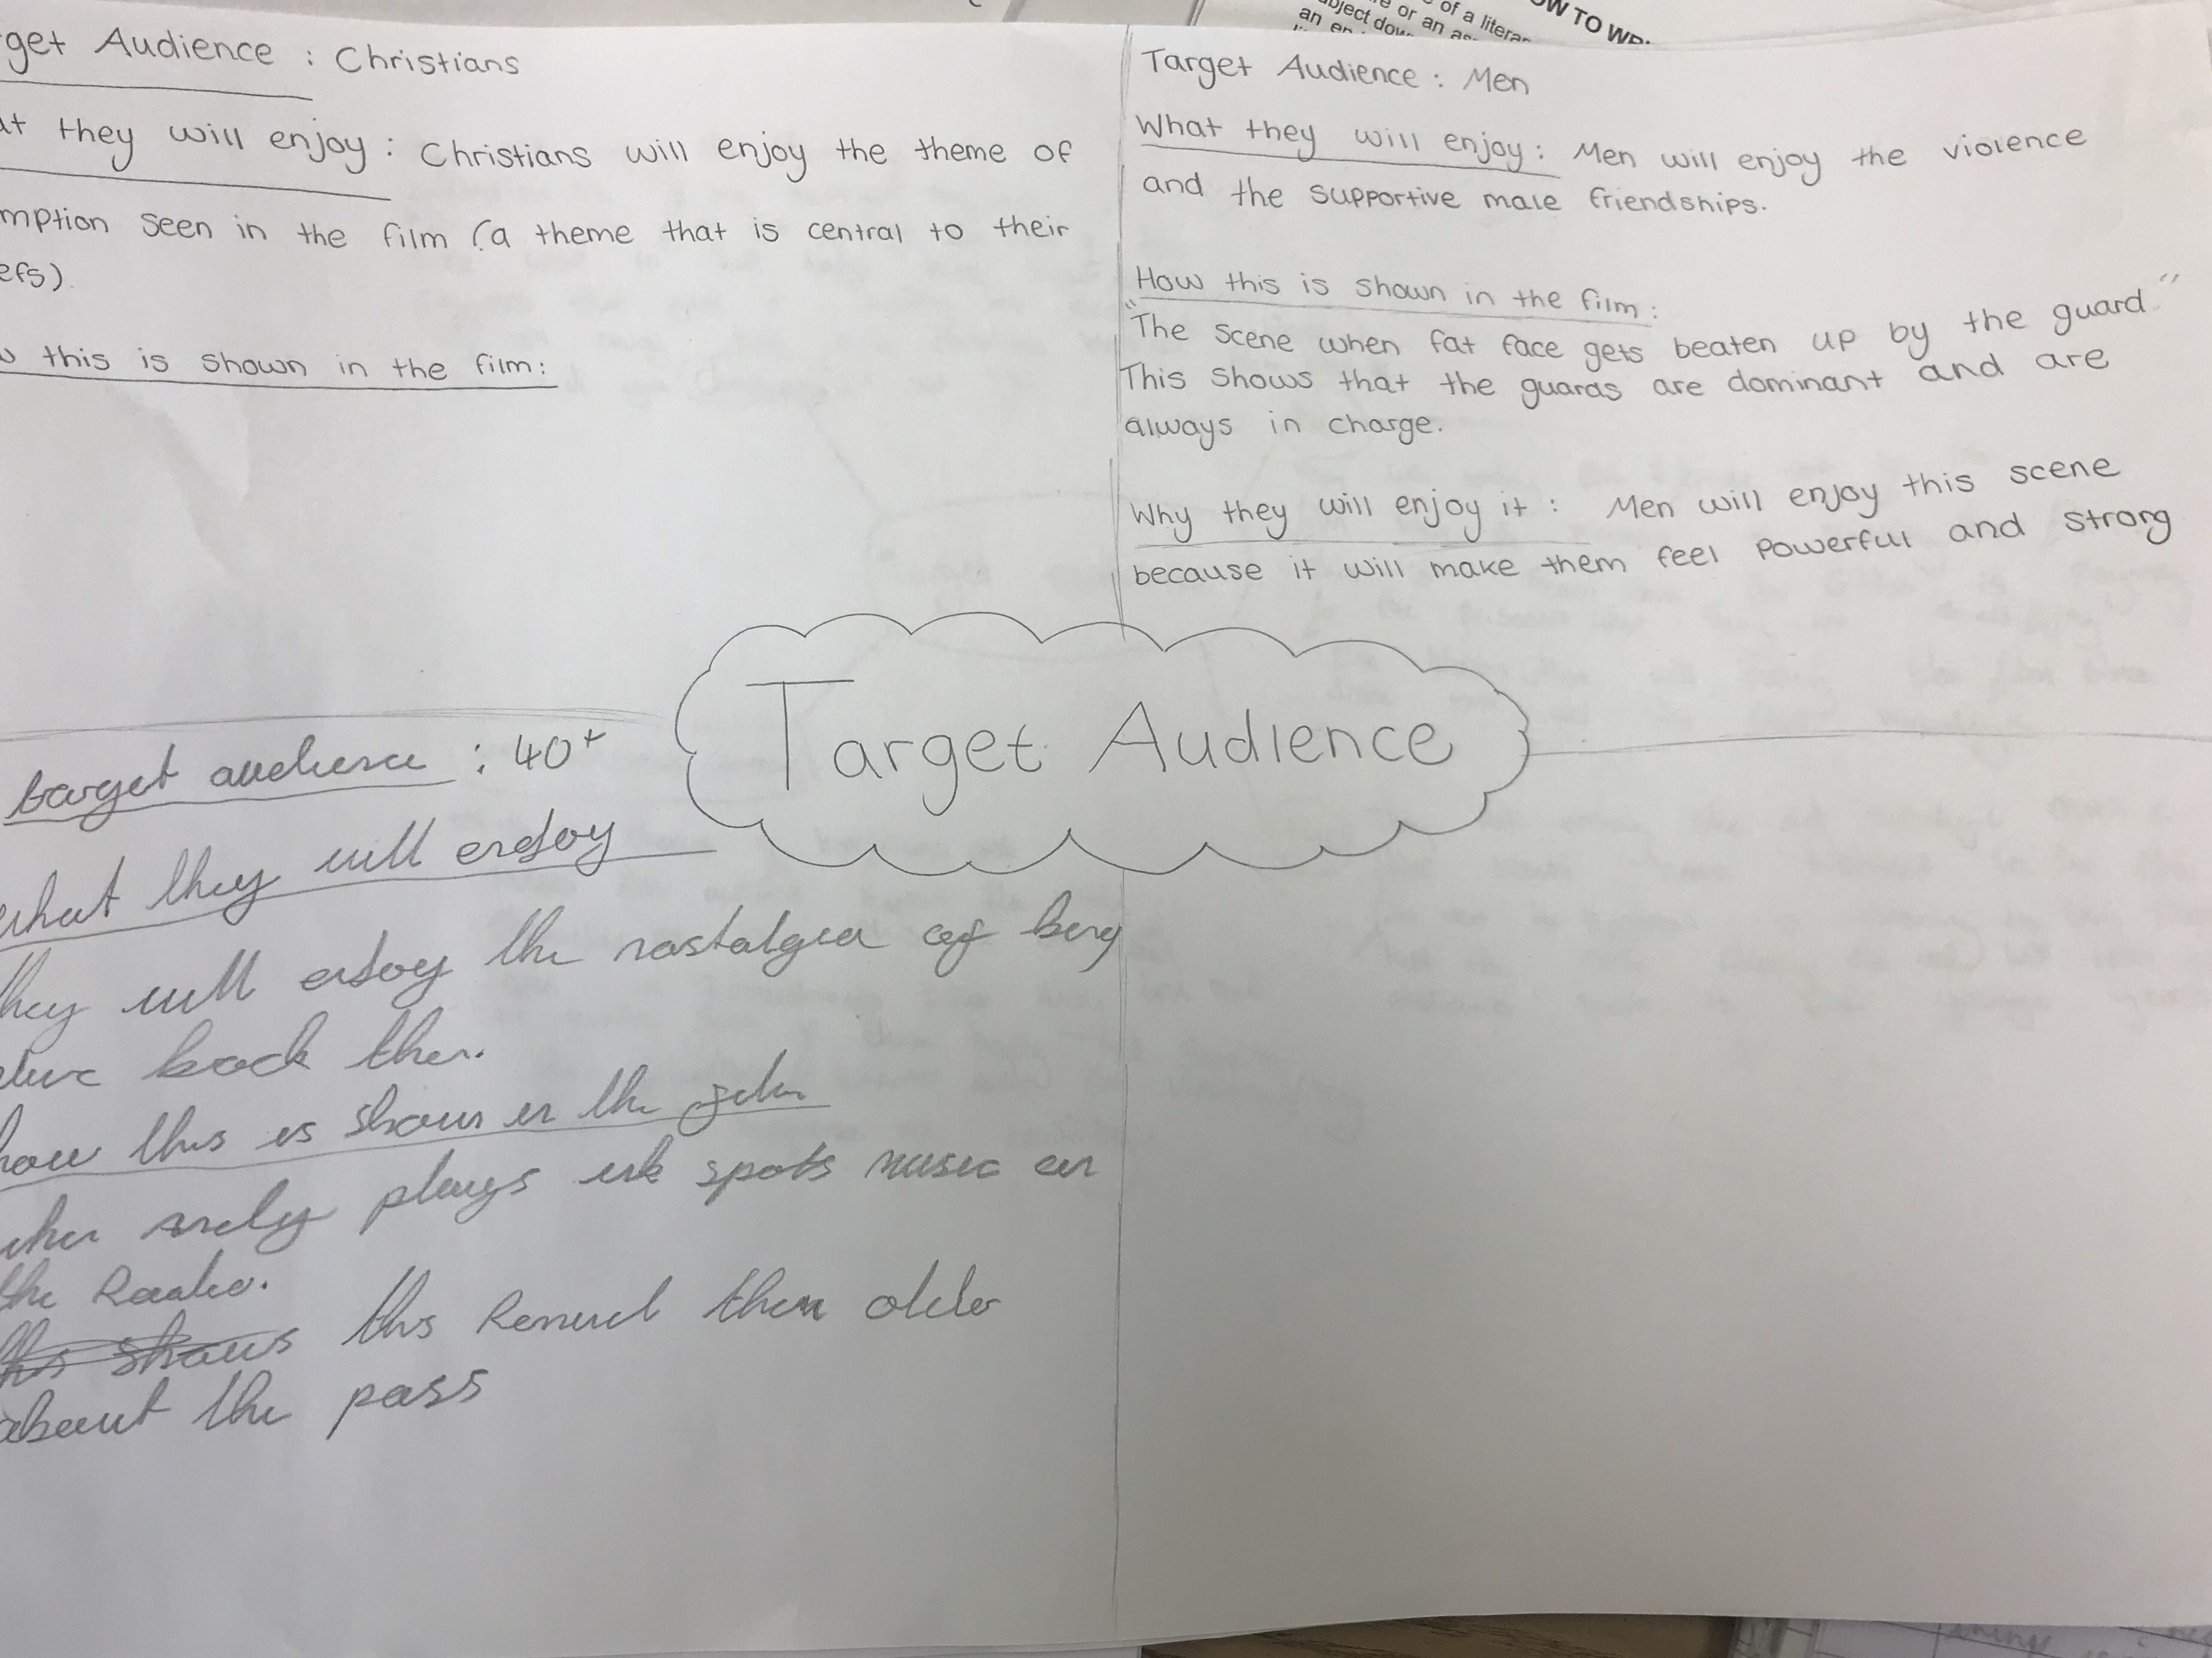 get Audience : Christians
at they will enjoy : Christians will enjoy the theme of
mption seen in the film (a theme that is central to their
efs).
this is shown in the film:
Target Audience : Men
What they will enjoy : Men will enjoy the violence
and the supportive male friendships.
How this is shown in the film :
"The scene when fat face gets beaten up by the guard"
This shows that the guards are dominant and are
always in charge.
Why they will enjoy it : Men will enjoy this scene
because it will make them feel powerful and strong
Target Audience
target audience : 40+
what they will enjoy
they will enjoy the nostalgia of being
alive back then.
how this is shown in the film
when andy plays ink spots music on
the Radio.
this shows this Remind them older
about the pass
OW TO WRI
of a literar
e or an as
bject dow
an en